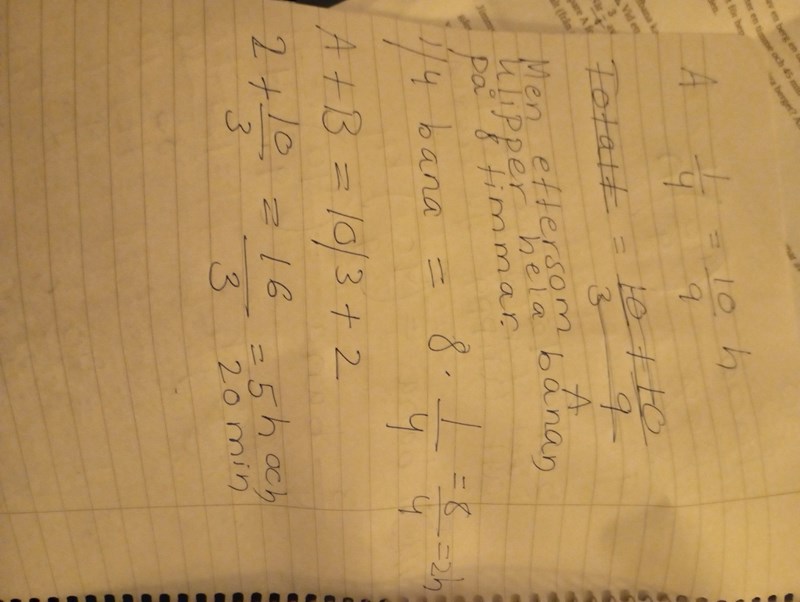 A 1/4 = 10/9 h
Totalt = 10/3 + 10/9
Men eftersom A
klipper hela banan
på 8 timmar.
1/4 bana = 8 · 1/4 = 8/4 = 2h
A + B = 10/3 + 2
2 + 10/3 = 16/3 = 5h och
20 min